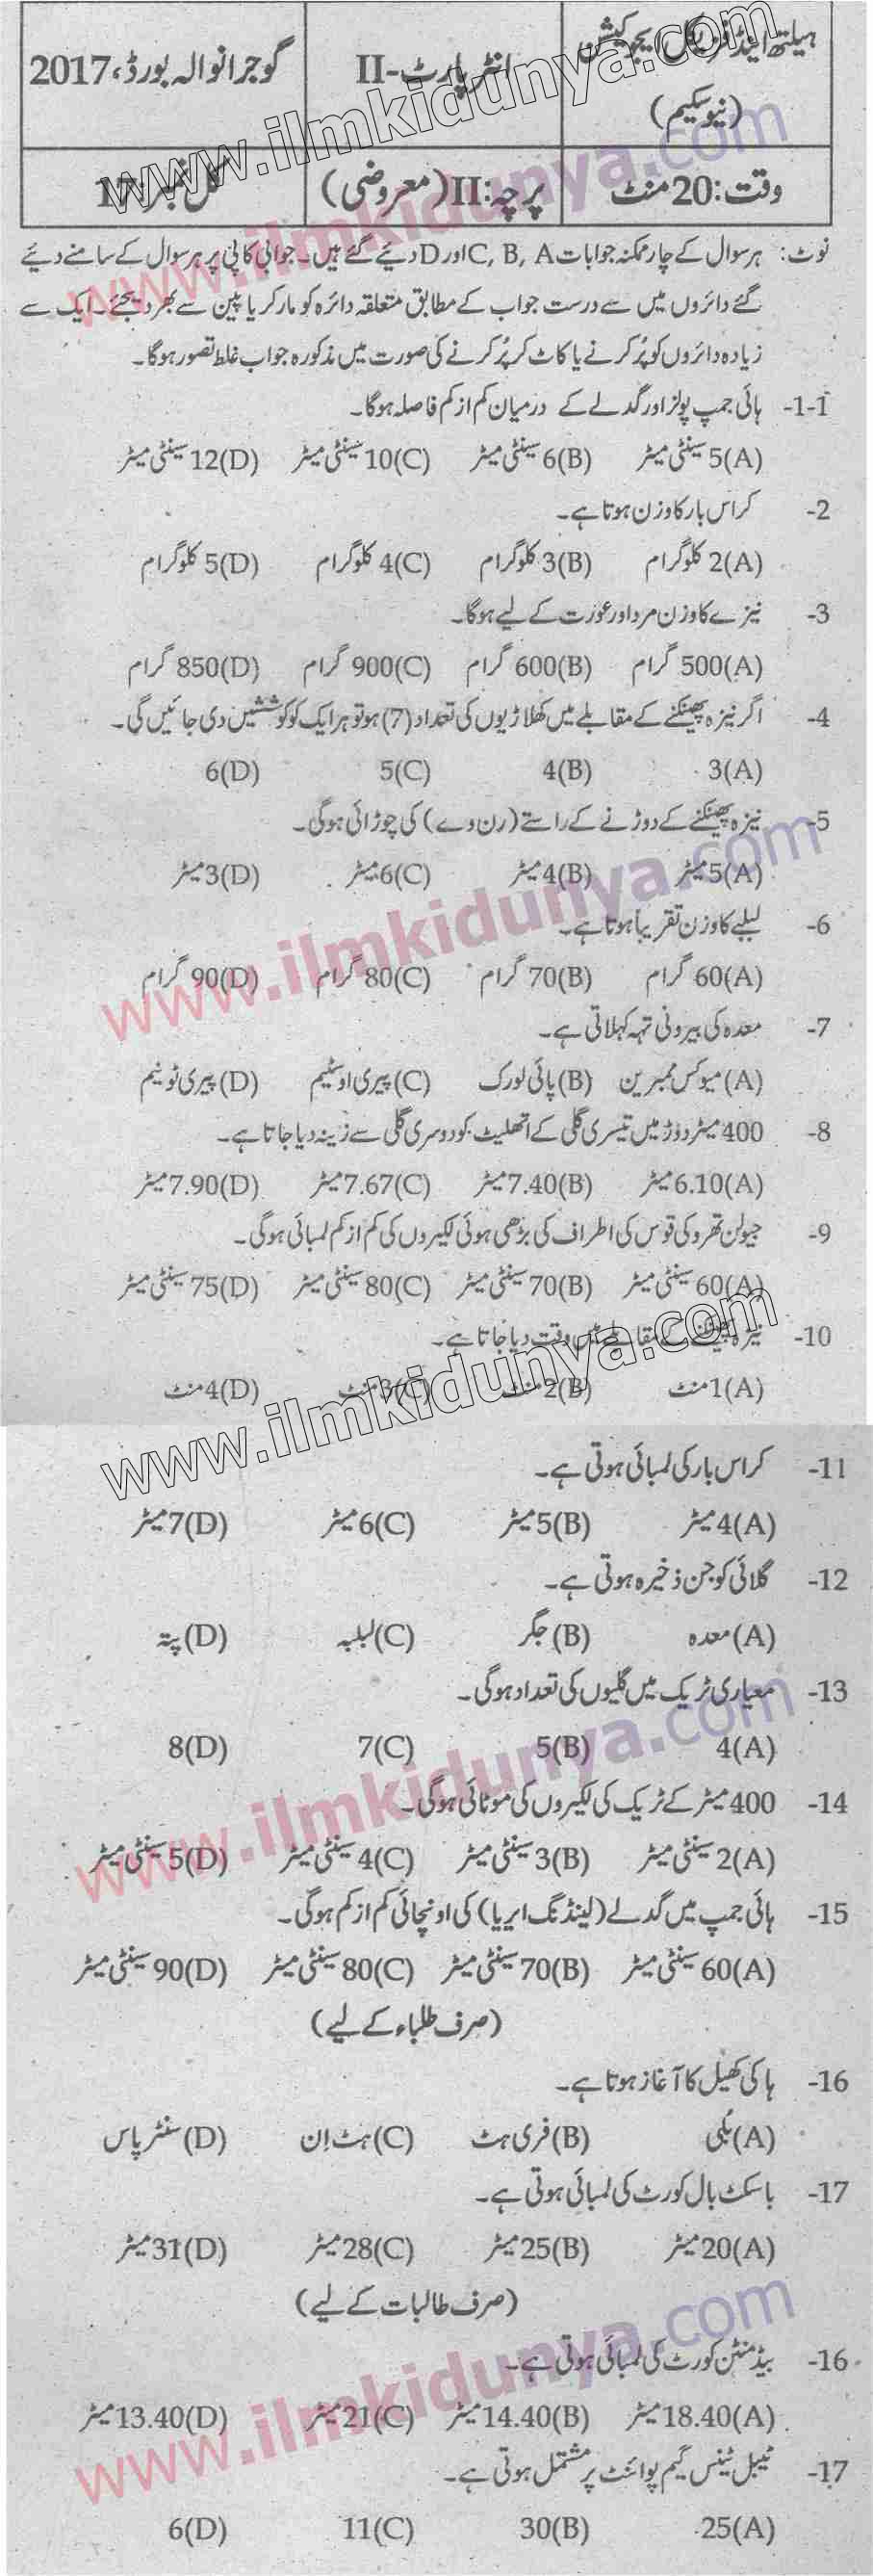 ہیلتھ اینڈ فزیکل ایجوکیشن (نیو سکیم) انٹر پارٹ-II گوجرانوالہ بورڈ، 2017
وقت: 20 منٹ پرچہ: II (معروضی) کل نمبر: 17
نوٹ: ہر سوال کے چار ممکنہ جوابات A ،B ،C اور D دیئے گئے ہیں۔ جوابی کاپی پر ہر سوال کے سامنے دیئے
گئے دائروں میں سے درست جواب کے مطابق متعلقہ دائرہ کو مارکر یا پین سے بھر دیجئے۔ ایک سے
زیادہ دائروں کو پُر کرنے یا کاٹ کر پُر کرنے کی صورت میں مذکورہ جواب غلط تصور ہوگا۔
1-1- ہائی جمپ پولز اور گدلے کے درمیان کم از کم فاصلہ ہوگا۔
(A) 5 سینٹی میٹر (B) 6 سینٹی میٹر (C) 10 سینٹی میٹر (D) 12 سینٹی میٹر
2- کراس بار کا وزن ہوتا ہے۔
(A) 2 کلوگرام (B) 3 کلوگرام (C) 4 کلوگرام (D) 5 کلوگرام
3- نیزے کا وزن مرد اور عورت کے لیے ہوگا۔
(A) 500 گرام (B) 600 گرام (C) 900 گرام (D) 850 گرام
4- اگر نیزہ پھینکنے کے مقابلے میں کھلاڑیوں کی تعداد (7) ہو تو ہر ایک کو کوششیں دی جائیں گی۔
(A) 3 (B) 4 (C) 5 (D) 6
5- نیزہ پھینکنے کے دوڑنے کے راستے (رن وے) کی چوڑائی ہوگی۔
(A) 5 میٹر (B) 4 میٹر (C) 6 میٹر (D) 3 میٹر
6- لبلبے کا وزن تقریباً ہوتا ہے۔
(A) 60 گرام (B) 70 گرام (C) 80 گرام (D) 90 گرام
7- معدہ کی بیرونی تہہ کہلاتی ہے۔
(A) میوکس ممبرین (B) پائی لورک (C) پیری اوسٹیم (D) پیری ٹونیم
8- 400 میٹر دوڑ میں تیسری گلی کے اتھلیٹ کو دوسری گلی سے زینہ دیا جاتا ہے۔
(A) 6.10 میٹر (B) 7.40 میٹر (C) 7.67 میٹر (D) 7.90 میٹر
9- جیولن تھرو کی قوس کی اطراف کی بڑھی ہوئی لکیروں کی کم از کم لمبائی ہوگی۔
(A) 60 سینٹی میٹر (B) 70 سینٹی میٹر (C) 80 سینٹی میٹر (D) 75 سینٹی میٹر
10- نیزہ پھینکنے کے مقابلے میں وقت دیا جاتا ہے۔
(A) 1 منٹ (B) 2 منٹ (C) 3 منٹ (D) 4 منٹ
11- کراس بار کی لمبائی ہوتی ہے۔
(A) 4 میٹر (B) 5 میٹر (C) 6 میٹر (D) 7 میٹر
12- گلائی کوجن ذخیرہ ہوتی ہے۔
(A) معدہ (B) جگر (C) لبلبہ (D) پتہ
13- معیاری ٹریک میں گلیوں کی تعداد ہوگی۔
(A) 4 (B) 5 (C) 7 (D) 8
14- 400 میٹر کے ٹریک کی لکیروں کی موٹائی ہوگی۔
(A) 2 سینٹی میٹر (B) 3 سینٹی میٹر (C) 4 سینٹی میٹر (D) 5 سینٹی میٹر
15- ہائی جمپ میں گدلے (لینڈنگ ایریا) کی اونچائی کم از کم ہوگی۔
(A) 60 سینٹی میٹر (B) 70 سینٹی میٹر (C) 80 سینٹی میٹر (D) 90 سینٹی میٹر
(صرف طلباء کے لیے)
16- ہاکی کھیل کا آغاز ہوتا ہے۔
(A) بُلی (B) فری ہٹ (C) ہٹ اِن (D) سنٹر پاس
17- باسکٹ بال کورٹ کی لمبائی ہوتی ہے۔
(A) 20 میٹر (B) 25 میٹر (C) 28 میٹر (D) 31 میٹر
(صرف طالبات کے لیے)
16- بیڈمنٹن کورٹ کی لمبائی ہوتی ہے۔
(A) 18.40 میٹر (B) 14.40 میٹر (C) 21 میٹر (D) 13.40 میٹر
17- ٹیبل ٹینس گیم پوائنٹ پر مشتمل ہوتی ہے۔
(A) 25 (B) 30 (C) 11 (D) 6
www.ilmkidunya.com
www.ilmkidunya.com
www.ilmkidunya.com
www.ilmkidunya.com
www.ilmkidunya.com
www.ilmkidunya.com